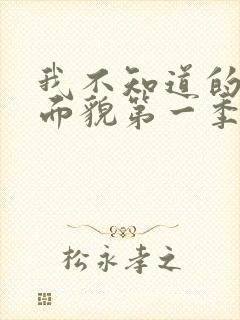 我不知道的
而貌第一季
松永孝之